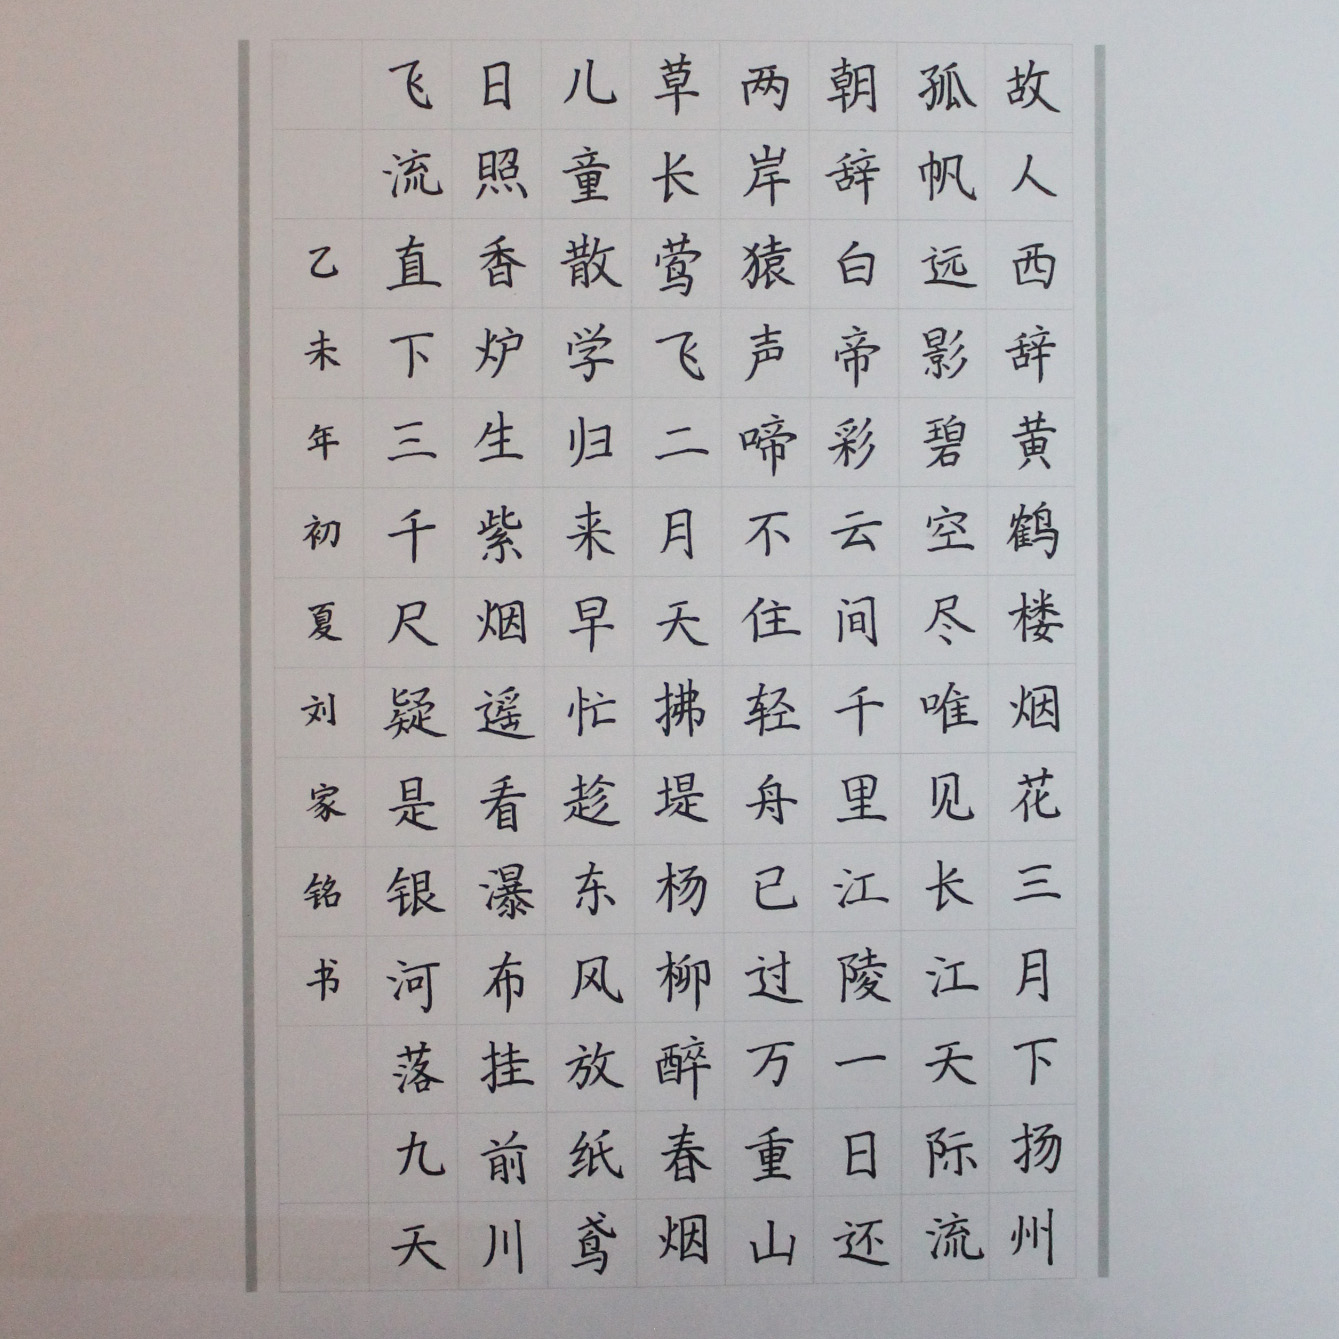 故人西辞黄鹤楼烟花三月下扬州
孤帆远影碧空尽唯见长江天际流
朝辞白帝彩云间千里江陵一日还
两岸猿声啼不住轻舟已过万重山
草长莺飞二月天拂堤杨柳醉春烟
儿童散学归来早忙趁东风放纸鸢
日照香炉生紫烟遥看瀑布挂前川
飞流直下三千尺疑是银河落九天
乙未年初夏刘家铭书